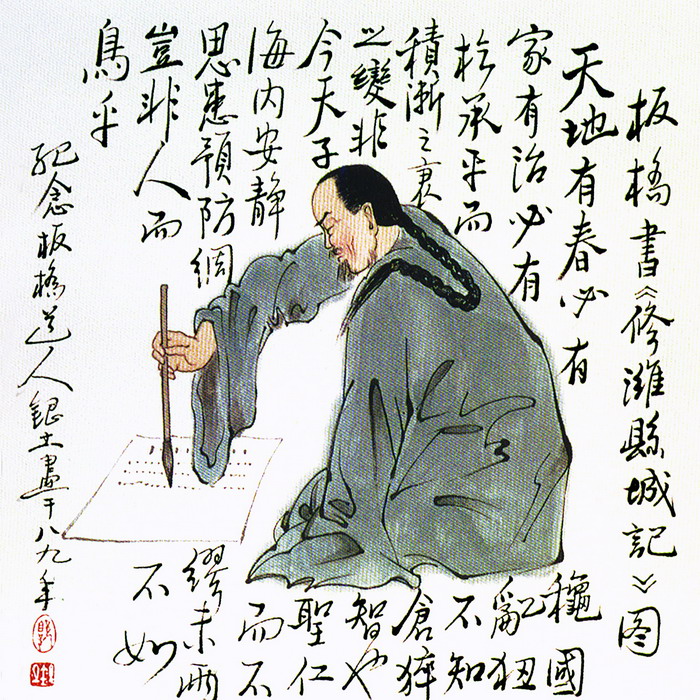 板橋書《修濰縣城記》图
天地有春必有龝國
家有治必有亂狃
於承平而不知
積漸之衰倉猝
之變非智也
今天子聖仁
海内安靜而不
思患預防綢繆未雨
豈非人而不如
鳥乎
紀念板橋道人銀土畫于八九年